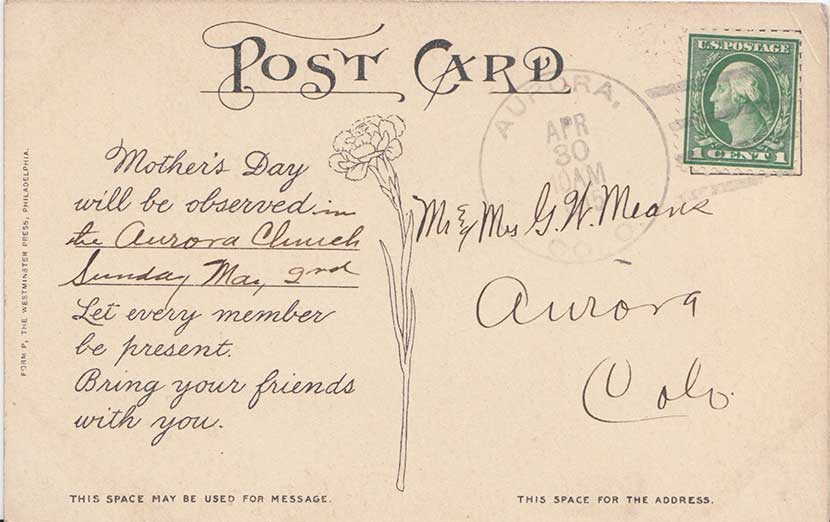 POST CARD
U.S. POSTAGE
1 CENT 1
AURORA,
APR
30
COLO.
Mother's Day
will be observed in
the Aurora Church
Sunday May 2nd
Let every member
be present.
Bring your friends
with you.
Mr & Mrs G. W. Means
Aurora
Colo.
FORM P, THE WESTMINSTER PRESS, PHILADELPHIA.
THIS SPACE MAY BE USED FOR MESSAGE.
THIS SPACE FOR THE ADDRESS.